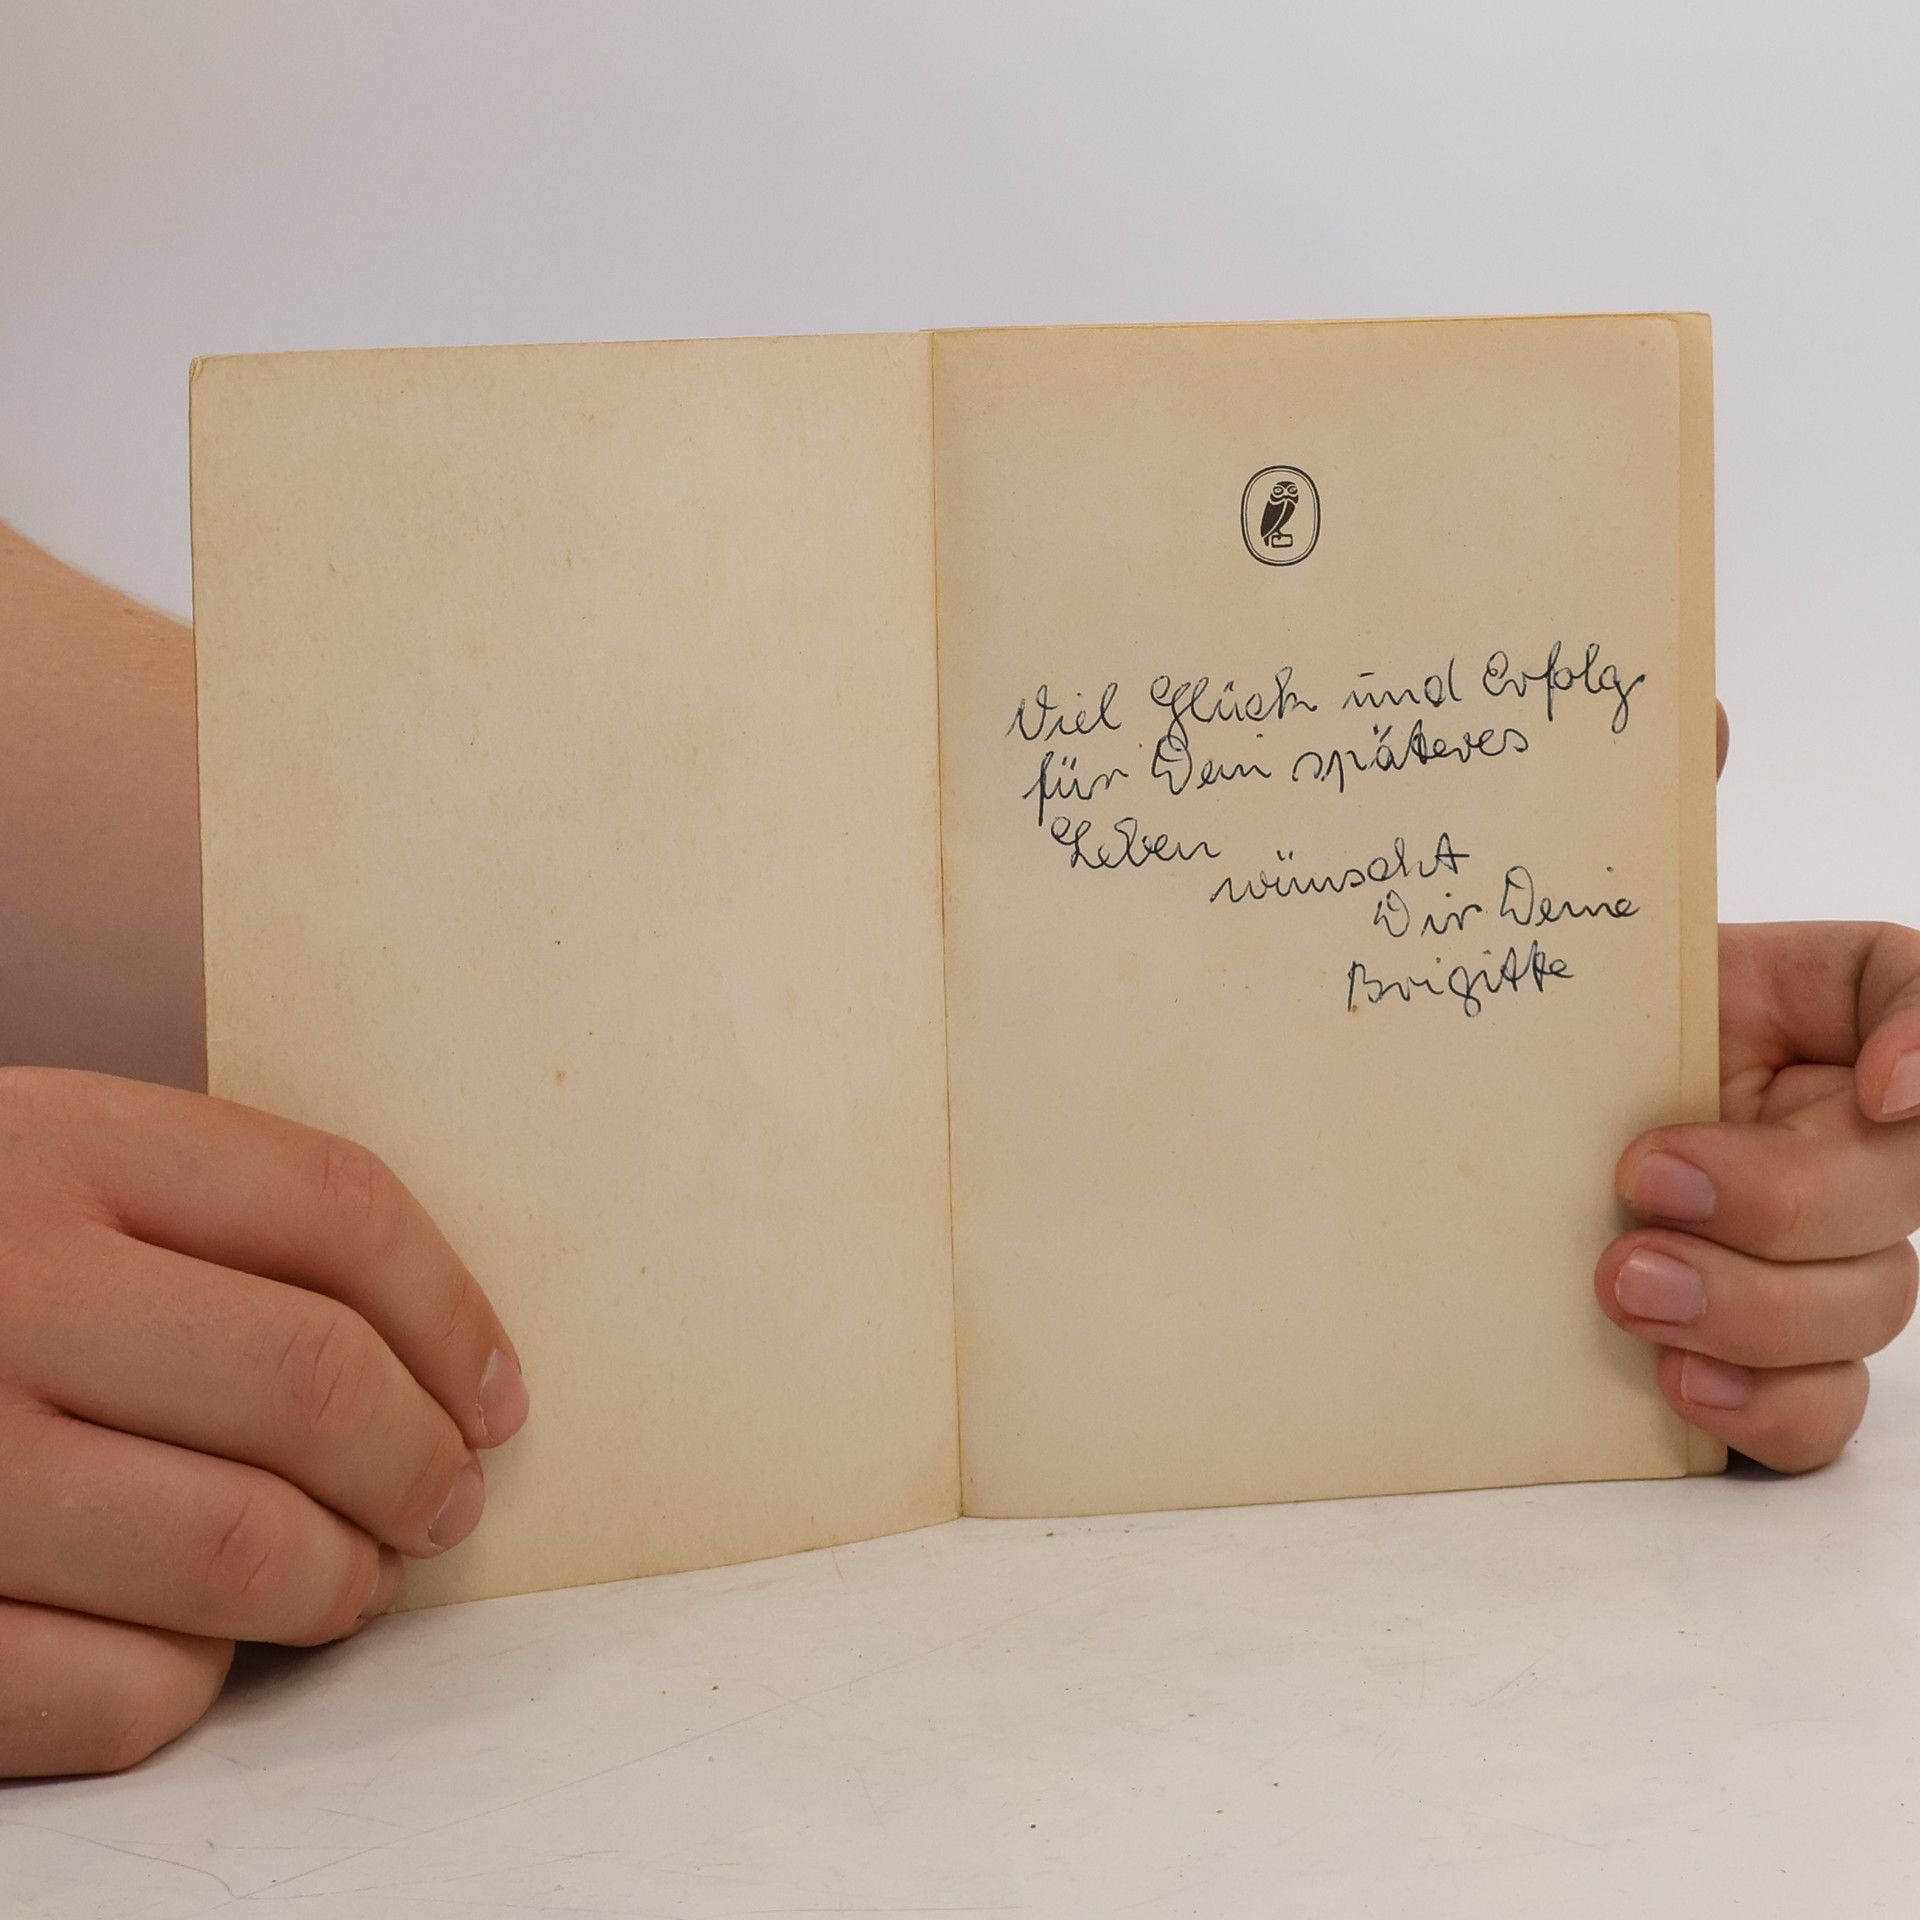 Viel Glück und Erfolg
für Dein späteres
Leben
wünscht
Dir Deine
Brigitte